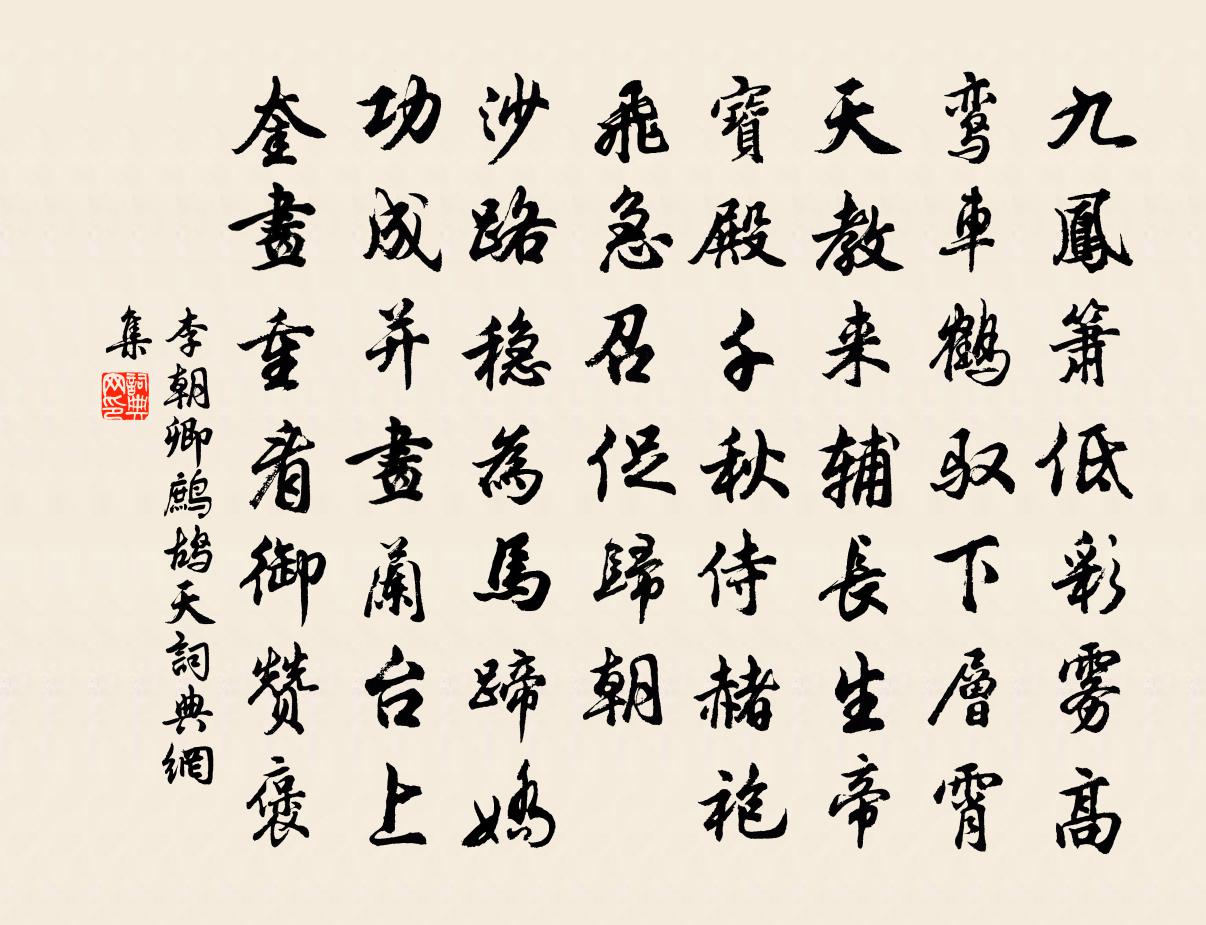 九鳳簫低彩雾高
鸾車鶴驭下層霄
天教来辅長生帝
寶殿千秋侍赭袍
飛急召促歸朝
沙路穏為馬蹄嬌
功成并畫蘭台上
奎畫重看御赞褒
李朝卿鷓鴣天詞典網
集
詞典網印